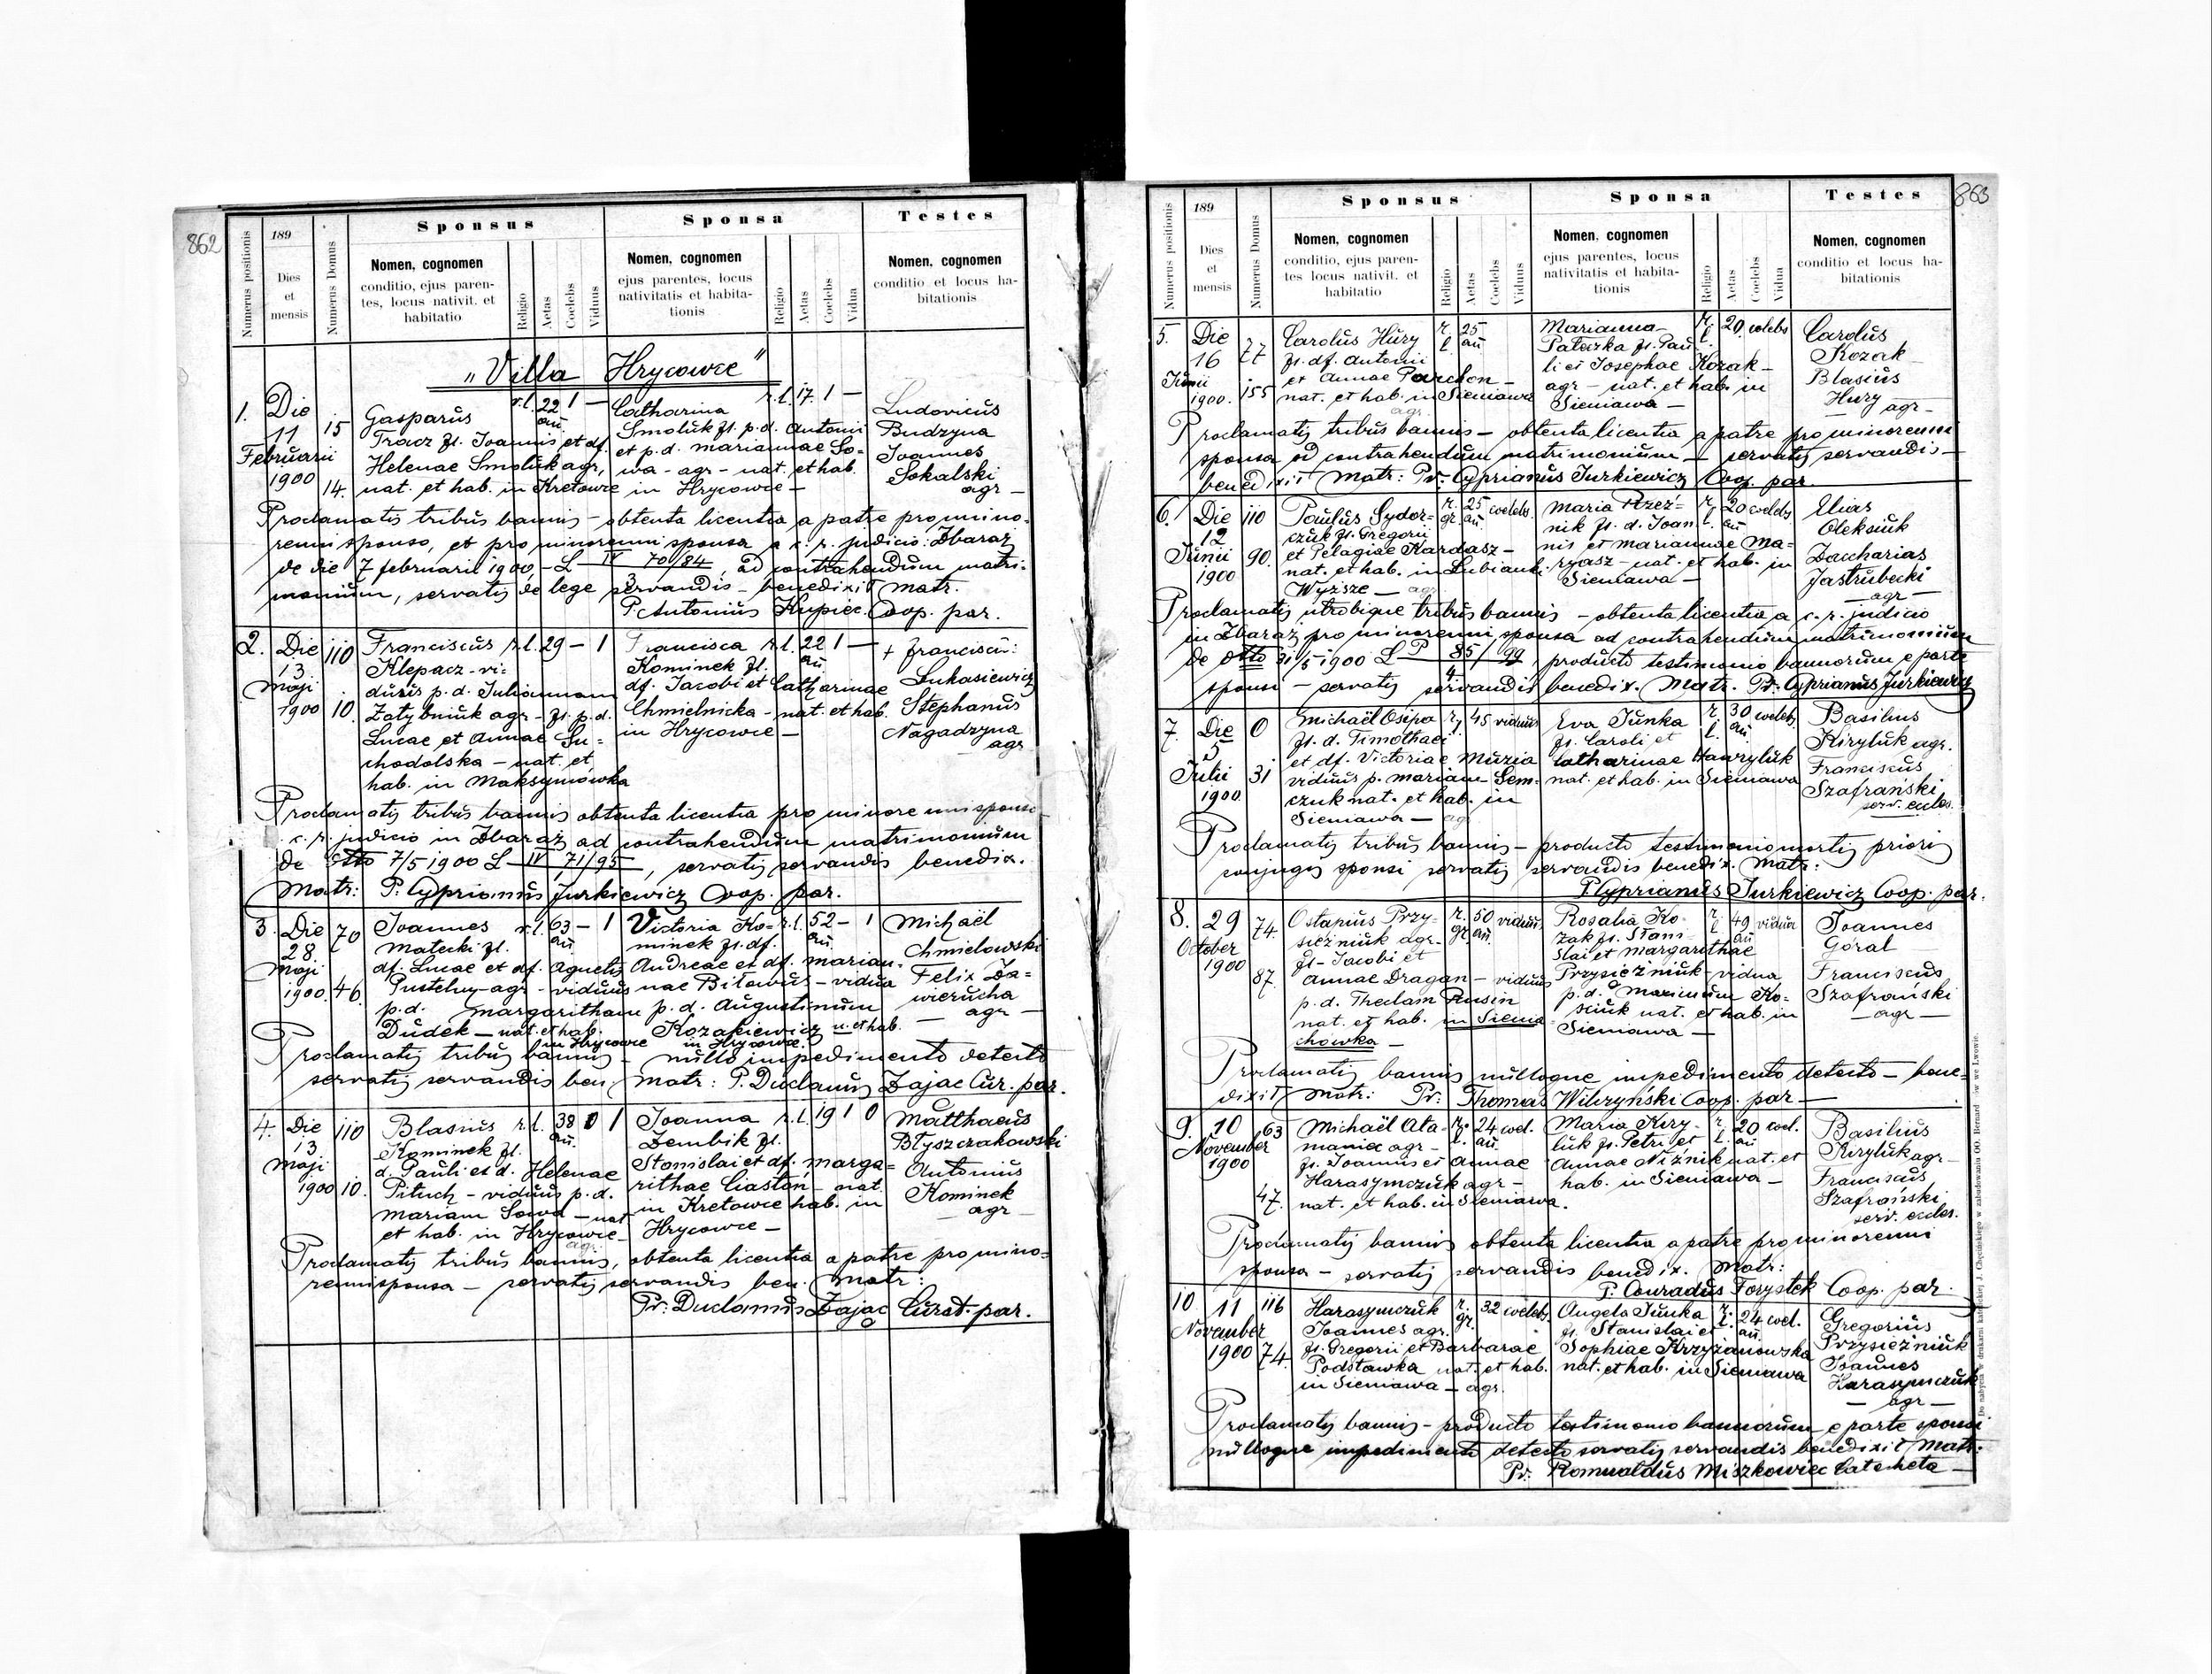 862
Numerus positionis
189
Dies
et
mensis
Numerus Domus
Sponsus
Nomen, cognomen
conditio, ejus paren-
tes, locus nativit. et
habitatio
Religio
Aetas
Coelebs
Viduus
Sponsa
Nomen, cognomen
ejus parentes, locus
nativitatis et habita-
tionis
Religio
Aetas
Coelebs
Vidua
Testes
Nomen, cognomen
conditio et locus ha-
bitationis
„Villa Hrycowce"
1. Die
11
Februarii
1900
15
14.
Gasparus
Tracz fl. Joannis et df.
Helenae Smoluk agr,
nat. et hab. in Kretowce
r.l. 22 au. 1 —
Catharina
Smoluk fl. p.d. Antonii
et p.d. mariannae So=
wa - agr - nat. et hab.
in Hrycowce —
r.l. 17. 1 —
Ludovicus
Budzyna
Joannes
Sokalski
agr —
Proclamatis tribus bannis - obtenta licentia a patre pro mino-
renni sponso, et pro minorenni sponsa a c. r. judicio: Zbaraz
de die 7 februarii 1900 - L IV 70/84, ad contrahendum matri-
3
monium, servatis de lege servandis - benedixit matr.
P. Antonius Kupiec. Coop. par.
2. Die
13
Maji
1900
110
10.
Franciscus
Klepacz - vi-
duus p.d. Juliannam
Zatybniuk agr - fl. p.d.
Lucae et Annae Su=
chodolska - nat. et
hab. in Maksymowka
r.l. 29 - 1
Francisca
Kominek fl.
df. Jacobi et Catharinae
Chmielnicka - nat. et hab.
in Hrycowce —
r.l. 22 au. 1 —
+ francisci:
Lukasiewicz
Stephanus
Nagadzyna
agr
Proclamatis tribus bannis obtenta licentia pro minorenni sponsa
c. r. judicio in Zbaraż ad contrahendum matrimonium
de dtto 7/5 1900 L IV 71/95, servatis servandis benedix.
Matr: P. Cyprianus Jurkiewicz Coop. par.
3. Die
28
Maji
1900.
70
46.
Joannes
Matecki fl.
df. Lucae et df. Agnetis
Pustelny - agr - viduus
p.d. margaritham
Dudek — nat. et hab.
in Hrycowce
r.l. 63 au. - 1
Victoria Ko=
minek fl. df.
Andreae et df. marian.
nae Bitowus - vidua
p.d. Augustinum
Kozakiewicz n. et hab.
in Hrycowce.
r.l. 52 au. - 1
Michaël
Chmielowski
Felix Za=
wierucha
— agr —
Proclamatis tribus bannis - nullo impedimento detecto
servatis servandis ben. Matr: P. Duclanus Zajac Cur. par.
4. Die
13
Maji
1900
110
10.
Blasius
Kominek fl.
d. Pauli et d. Helenae
Pituch - viduus p.d.
mariam Sowa — nat
et hab. in Hrycowce
agr.
r.l. 38 au. 0 1
Joanna
Dembik fl.
Stanislai et df. marga=
rithae Ciaston - nat.
in Kretowce hab. in
Hrycowce —
r.l. 19 1 0
Matthaeus
Błyszczakowski
Antonius
Kominek
— agr —
Proclamatis tribus bannis, obtenta licentia a patre pro mino=
renni sponsa — servatis servandis ben. Matr:
Pr: Duclanus Zajac Curat. par.
863
Numerus positionis
189
Dies
et
mensis
Numerus Domus
Sponsus
Nomen, cognomen
conditio, ejus paren-
tes locus nativit. et
habitatio
Religio
Aetas
Coelebs
Viduus
Sponsa
Nomen, cognomen
ejus parentes, locus
nativitatis et habita-
tionis
Religio
Aetas
Coelebs
Vidua
Testes
Nomen, cognomen
conditio et locus ha-
bitationis
5. Die
16
Junii
1900.
77
155
Carolus Hury
fl. df. Antonii
et Annae Parchon —
nat. et hab. in Sieniawa
agr.
r. l. 25 au
Marianna
Patazka fl. Pau
li et Josephae Kozak —
agr — nat. et hab. in
Sieniawa —
r. l. 20 coelebs
Carolus
Kozak
Blasius
Hury
agr —
Proclamatis tribus bannis — obtenta licentia a patre pro minorenni
sponsa ad contrahendum matrimonium — servatis servandis —
benedixit Matr: Pr. Cyprianus Jurkiewicz Coop. par.
6. Die
12
Junii
1900
110
90.
Paulus Sydor=
czuk fl. Gregorii
et Pelagiae Kardasz —
nat. et hab. in Lubianki
Wyższe — agr
r. gr. 25 au. coelebs
Maria Rzeź=
nik fl. d. Joan
nis et mariannae Ma=
ryasz - nat. et hab. in
Sieniawa —
r. l. 20 au coelebs
Elias
Oleksiuk
Zaccharias
Jastrubecki
— agr —
Proclamatis utrobique tribus bannis — obtenta licentia a c. r. judicio
in Zbaraz pro minorenni sponsa ad contrahendum matrimonium
de dtto 31/5 1900 L P 85/99, producto testimonio bannorum e parte
4
sponsi — servatis servandis benedix. Matr. Pr. Cyprianus Jurkiewicz
7. Die
5
Julii
1900.
0
31
Michaël Osipa
fl. d. Timothaei
et df. Victoriae Muzia
viduus p. mariam Sem=
czuk nat. et hab. in
Sieniawa — ag.
45 viduus
Eva Junka
fl. Caroli et
Catharinae Hawryluk
nat. et hab. in Sieniawa
r. l. 30 au coelebs
Basilius
Kiryluk agr.
Franciscus
Szafrański
serv. eccles.
Proclamatis tribus bannis — producto testimonio mortis prioris
conjugis sponsi servatis servandis benedix. Matr:
P. Cyprianus Jurkiewicz Coop. par.
8. 29
October
1900
74.
87.
Ostapius Przy-
sieżniuk agr -
fl - Jacobi et
Annae Dragan — viduus
p.d. Theclam Rusin
nat. et hab. in Sienia
chowka —
r. gr. 50 au. viduus
Rosalia Ko-
zak fl. Stani-
slai et Margarithae
Przysieżniuk - vidua
p.d. Maximum Ko-
sciuk nat. et hab. in
Sieniawa —
r. l 49 au vidua
Joannes
Góral
Franciscus
Szafrański
— agr —
Proclamatis bannis nulloque impedimento detecto — bene=
dixit Matr: Pr: Thomas Wilczyński Coop. par —
9. 10
November
1900
63
47.
Michaël Ata-
maniec agr -
fl. Joannis et Annae
Harasymczuk agr —
nat. et hab. in Sieniawa.
r. l. 24 au. coel.
Maria Kiry-
luk fl. Petri et
Annae Niżnik nat. et
hab. in Sieniawa —
r. l. 20 au coel.
Basilius
Kiryluk agr —
Franciscus
Szafrański
serv. eccles.
Proclamatis bannis obtenta licentia a patre pro minorenni
sponsa — servatis servandis benedix. Matr:
P. Conradus Forystek Coop. par.
10. 11
November
1900
116
74.
Harasymczuk
Joannes agr.
fl. Gregorii et Barbarae
Podstawka nat. et hab.
in Sieniawa — agr.
r. gr. 32 coelebs
Angela Junka
fl. Stanislai et
Sophiae Krzyżanowska
nat. et hab. in Sieniawa
r. l. 24 au. coel.
Gregorius
Przysieżniuk
Joannes
Harasymczuk
— agr —
Proclamatis bannis - producto testimonio bannorum e parte sponsi
nulloque impedimento detecto servatis servandis benedixit Matr:
Pr. Romualdus Miszkowiec Catecheta —